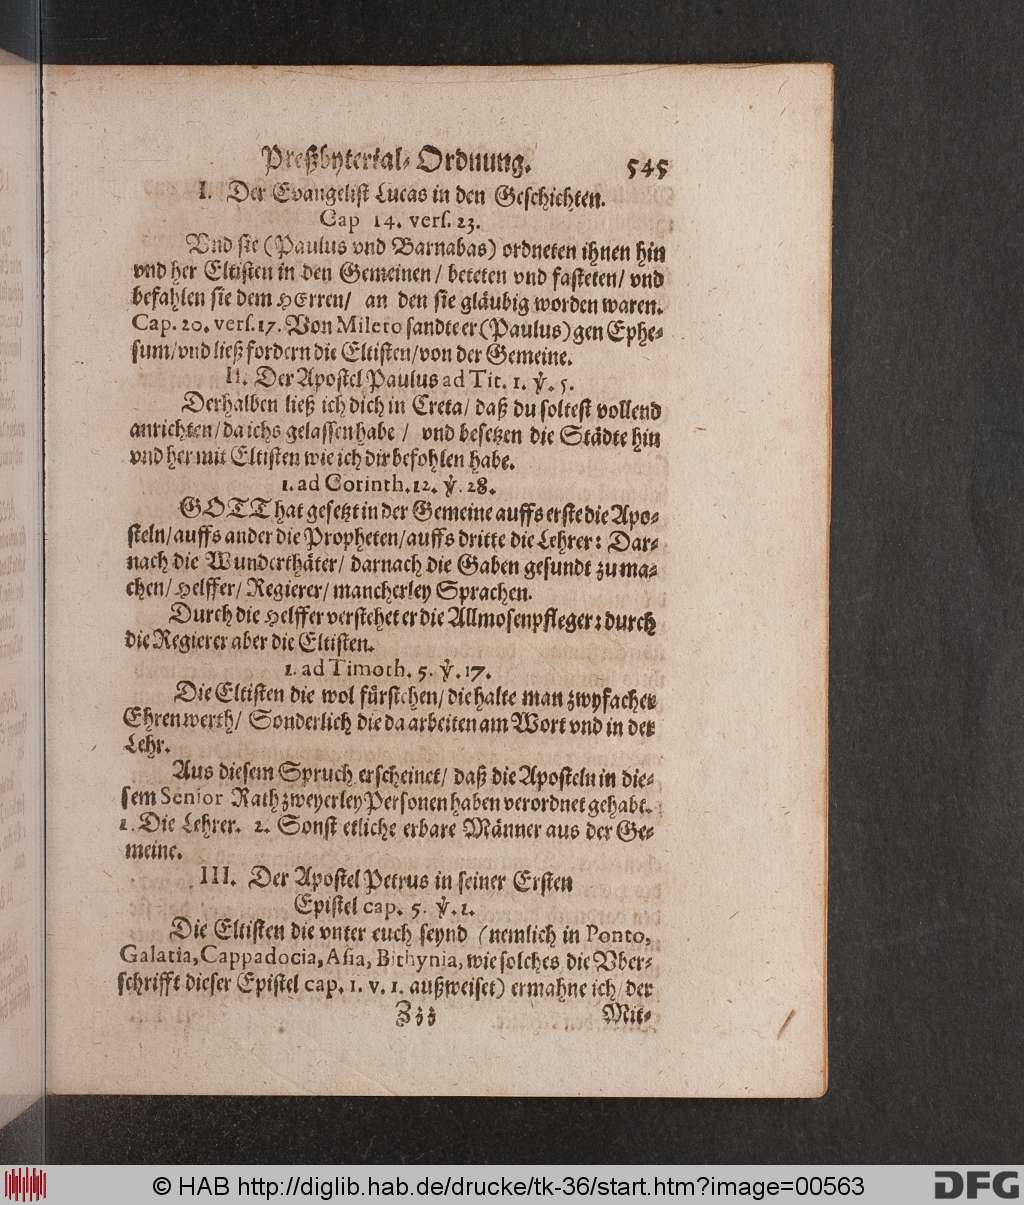 Preßbyterial-Ordnung. 545
I. Der Evangelist Lucas in den Geschichten.
Cap 14. vers. 23.
Vnd sie (Paulus vnd Barnabas) ordneten ihnen hin
vnd her Eltisten in den Gemeinen / beteten vnd fasteten / vnd
befahlen sie dem HErren / an den sie gläubig worden waren.
Cap. 20. vers. 17. Von Mileto sandte er (Paulus) gen Ephe-
sum / vnd ließ fordern die Eltisten / von der Gemeine.
II. Der Apostel Paulus ad Tit. 1. ℣. 5.
Derhalben ließ ich dich in Creta / daß du soltest vollend
anrichten / da ichs gelassen habe / vnd besetzen die Städte hin
vnd her mit Eltisten wie ich dir befohlen habe.
1. ad Corinth. 12. ℣. 28.
GOTT hat gesetzt in der Gemeine auffs erste die Apo-
steln / auffs ander die Propheten / auffs dritte die Lehrer: Dar-
nach die Wunderthäter / darnach die Gaben gesundt zu ma-
chen / Helffer / Regierer / mancherley Sprachen.
Durch die Helffer verstehet er die Allmosenpfleger: durch
die Regierer aber die Eltisten.
1. ad Timoth. 5. ℣. 17.
Die Eltisten die wol fürstehen / die halte man zwyfacher
Ehren werth / Sonderlich die da arbeiten am Wort vnd in der
Lehr.
Aus diesem Spruch erscheinet / daß die Aposteln in die-
sem Senior Rath zweyerley Personen haben verordnet gehabt.
1. Die Lehrer. 2. Sonst etliche erbare Männer aus der Ge-
meine.
III. Der Apostel Petrus in seiner Ersten
Epistel cap. 5. ℣. 1.
Die Eltisten die vnter euch seynd (nemlich in Ponto,
Galatia, Cappadocia, Asia, Bithynia, wie solches die Vber-
schrifft dieser Epistel cap. 1. v. 1. außweiset) ermahne ich / der
Zzz Mit-
© HAB http://diglib.hab.de/drucke/tk-36/start.htm?image=00563
DFG